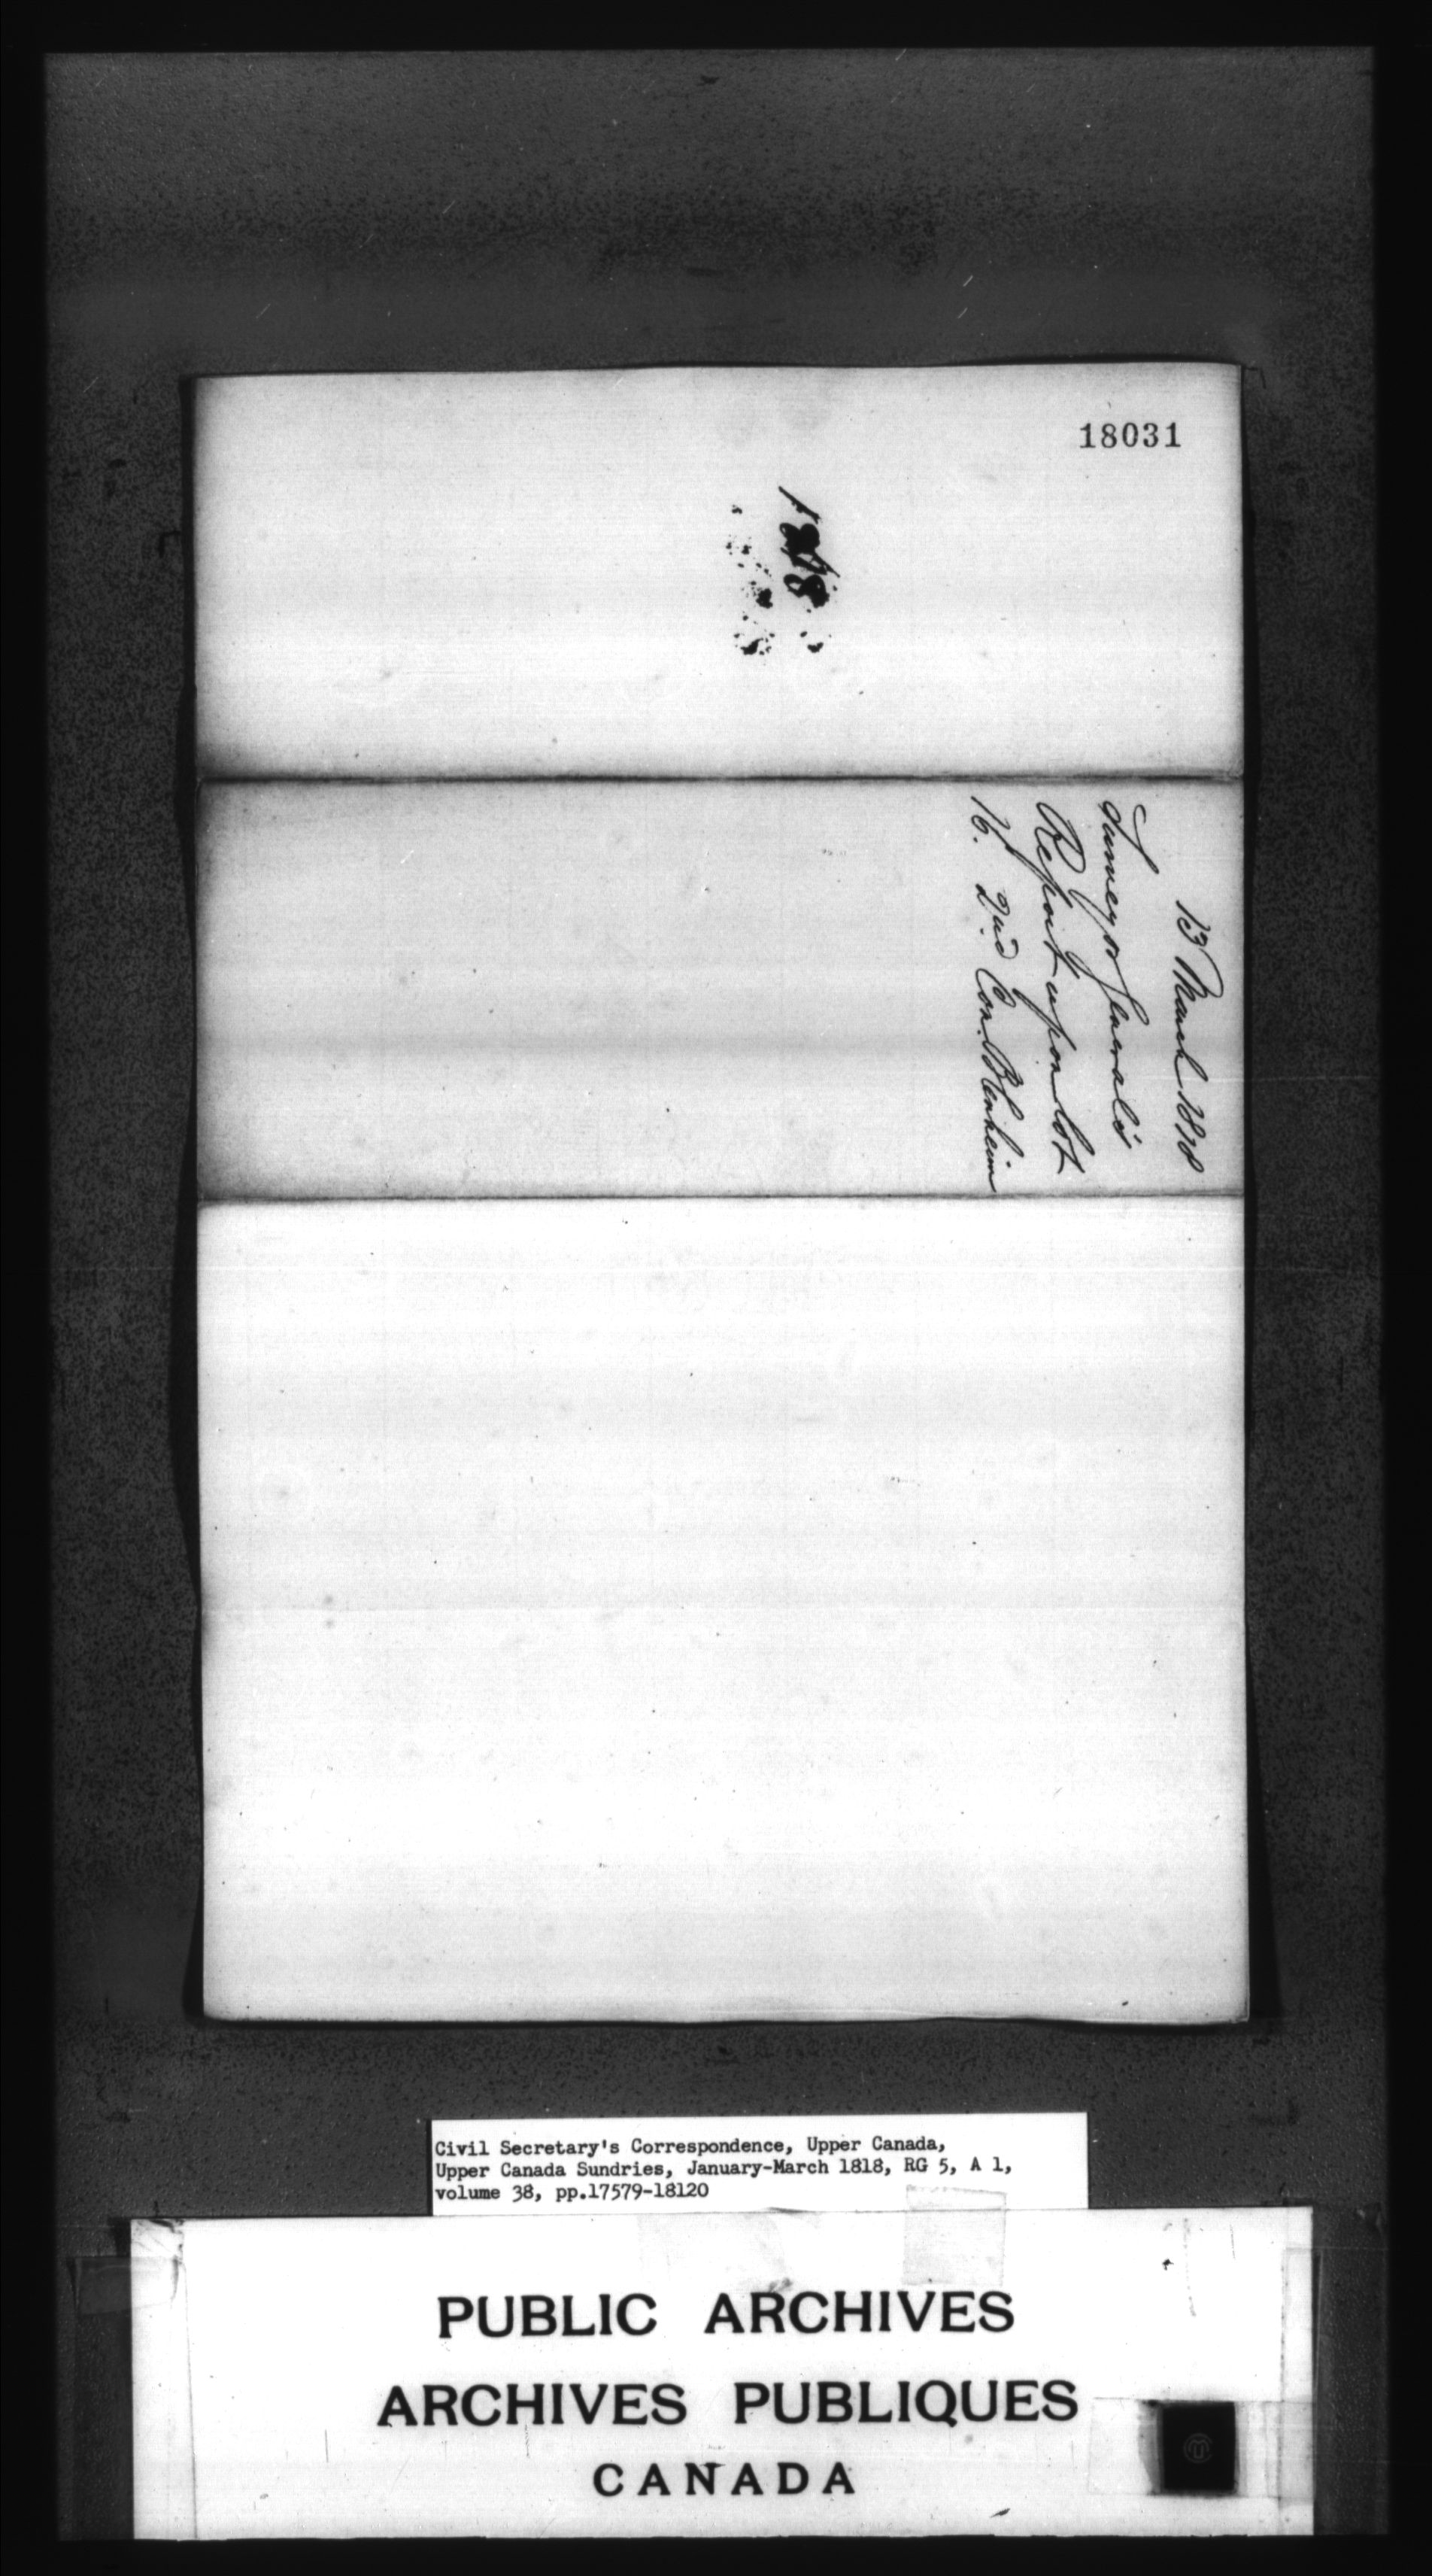 18031
13 March 1818
Surveyor General's
Report upon Lot
16. 2nd Con. Blenheim
Civil Secretary's Correspondence, Upper Canada,
Upper Canada Sundries, January-March 1818, RG 5, A 1,
volume 38, pp.17579-18120
PUBLIC ARCHIVES
ARCHIVES PUBLIQUES
CANADA